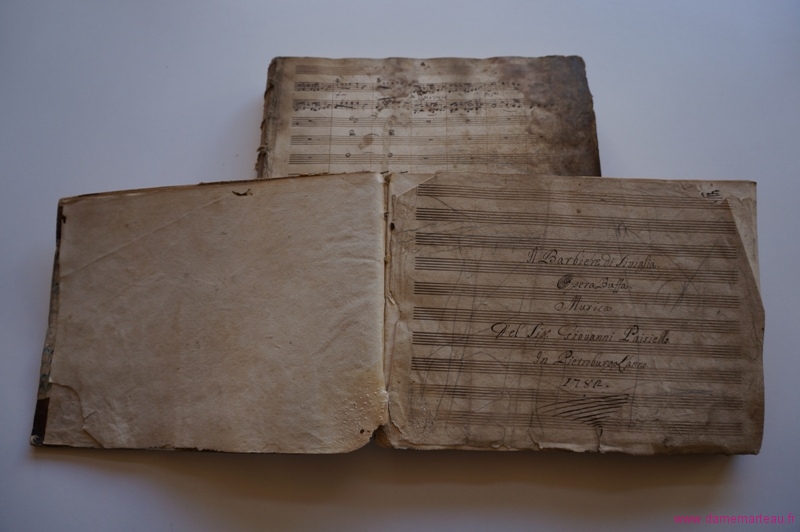 Il Barbiere di Siviglia
Opera Buffa
Musica
Del Sigr Giovanni Paisiello
In Pietroburgo L'anno
1782.
www.damemarteau.fr